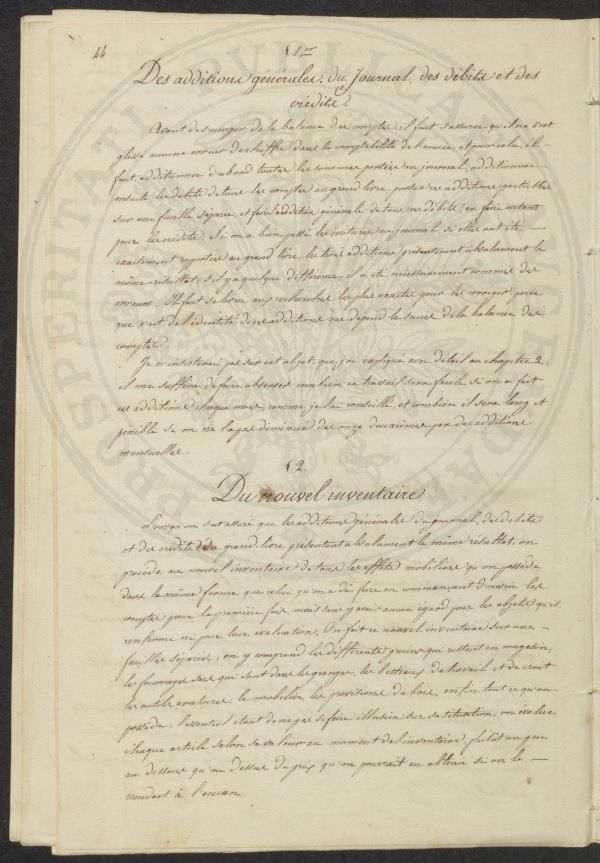 44
§ 1er
Des additions générales, du Journal, des débits et des
crédits.
Avant de s'occuper de la balance des comptes, il faut s'assurer qu'il ne s'est
glissé aucune erreur de chiffre dans la comptabilité de l'année, et pour cela, il
faut additionner d'abord toutes les sommes portées au journal, additionner
ensuite les débits de tous les comptes au grand livre, porter ces additions partielles
sur une feuille séparée, et faire l'addition générale de tous ces débits, en faire autant
pour les crédits. Si on a bien passé les écritures au journal, si elles ont été
exactement reportées au grand livre, les trois additions présenteront absolument le
même résultat, s'il y a quelque différence, il a été nécessairement commis des
erreurs. Il faut se livrer aux recherches les plus exactes pour les corriger, parce
que c'est de l'identité de ces additions que dépend le succès de la balance des
comptes.
Je n'insisterai pas sur cet objet, que j'ai expliqué avec détail au chapitre 2:
il me suffira de faire observer combien ce travail sera facile si on a fait
ces additions chaque mois, comme je l'ai conseillé, et combien il sera long et
pénible si on ne l'a pas diminué des onze douzièmes par des additions
mensuelles.
§ 2.
Du nouvel inventaire
Lorsqu'on s'est assuré que les additions générales du journal, des débits
et des crédits du grand livre présentent absolument le même résultat, on
procède au nouvel inventaire de tous les effets mobiliers qu'on possède
dans la même forme que celui qu'on a dû faire en commençant d'ouvrir les
comptes pour la première fois, mais sans y avoir aucun égard pour les objets qu'il
renferme ni pour leur évaluation. On fait ce nouvel inventaire sur une
feuille séparée, on y comprend les différents grains qui restent en magasin,
les fourrages secs qui sont dans les granges, les bestiaux de travail et de croit
les outils aratoires, le mobilier, les provisions de bois, enfin tout ce qu'on
possède; l'essentiel étant de ne pas se faire illusion sur sa situation, on évalue
chaque article selon sa valeur au moment de l'inventaire, plutôt un peu
au dessous qu'au dessus du prix qu'on pourrait en obtenir si on les
vendait à l'encan.